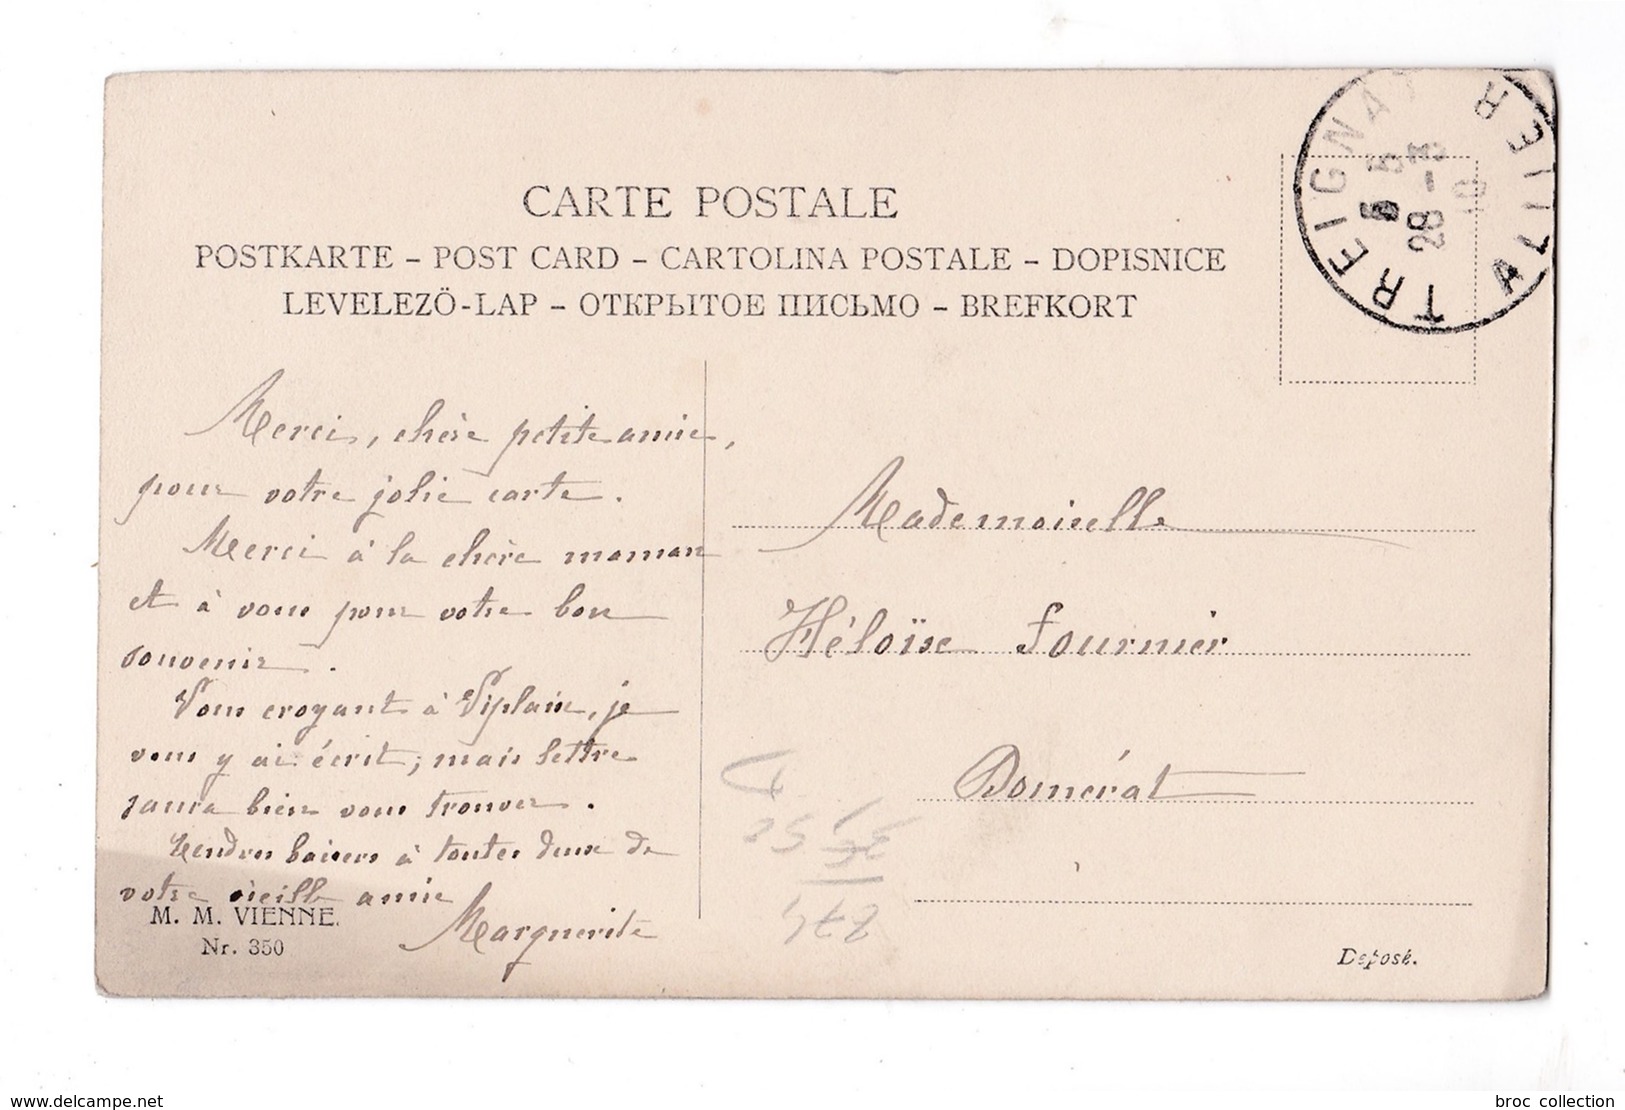 CARTE POSTALE
POSTKARTE – POST CARD – CARTOLINA POSTALE – DOPISNICE
LEVELEZÖ-LAP – ОТКРЫТОЕ ПИСЬМО – BREFKORT
TREIGNAT
ALLIER
5
28 - 3
10
Merci, chère petite amie,
pour votre jolie carte.
Merci à la chère maman
et à vous pour votre bon
souvenir.
Vous croyant à Viplaix, je
vous y ai écrit, mais lettre
saura bien vous trouver.
Tendres baisers à toutes deux de
votre vieille amie
Marguerite
Mademoiselle
Héloïse Fournier
Domérat
M. M. VIENNE.
Nr. 350
Deposé.
delcampe.net
broc collection